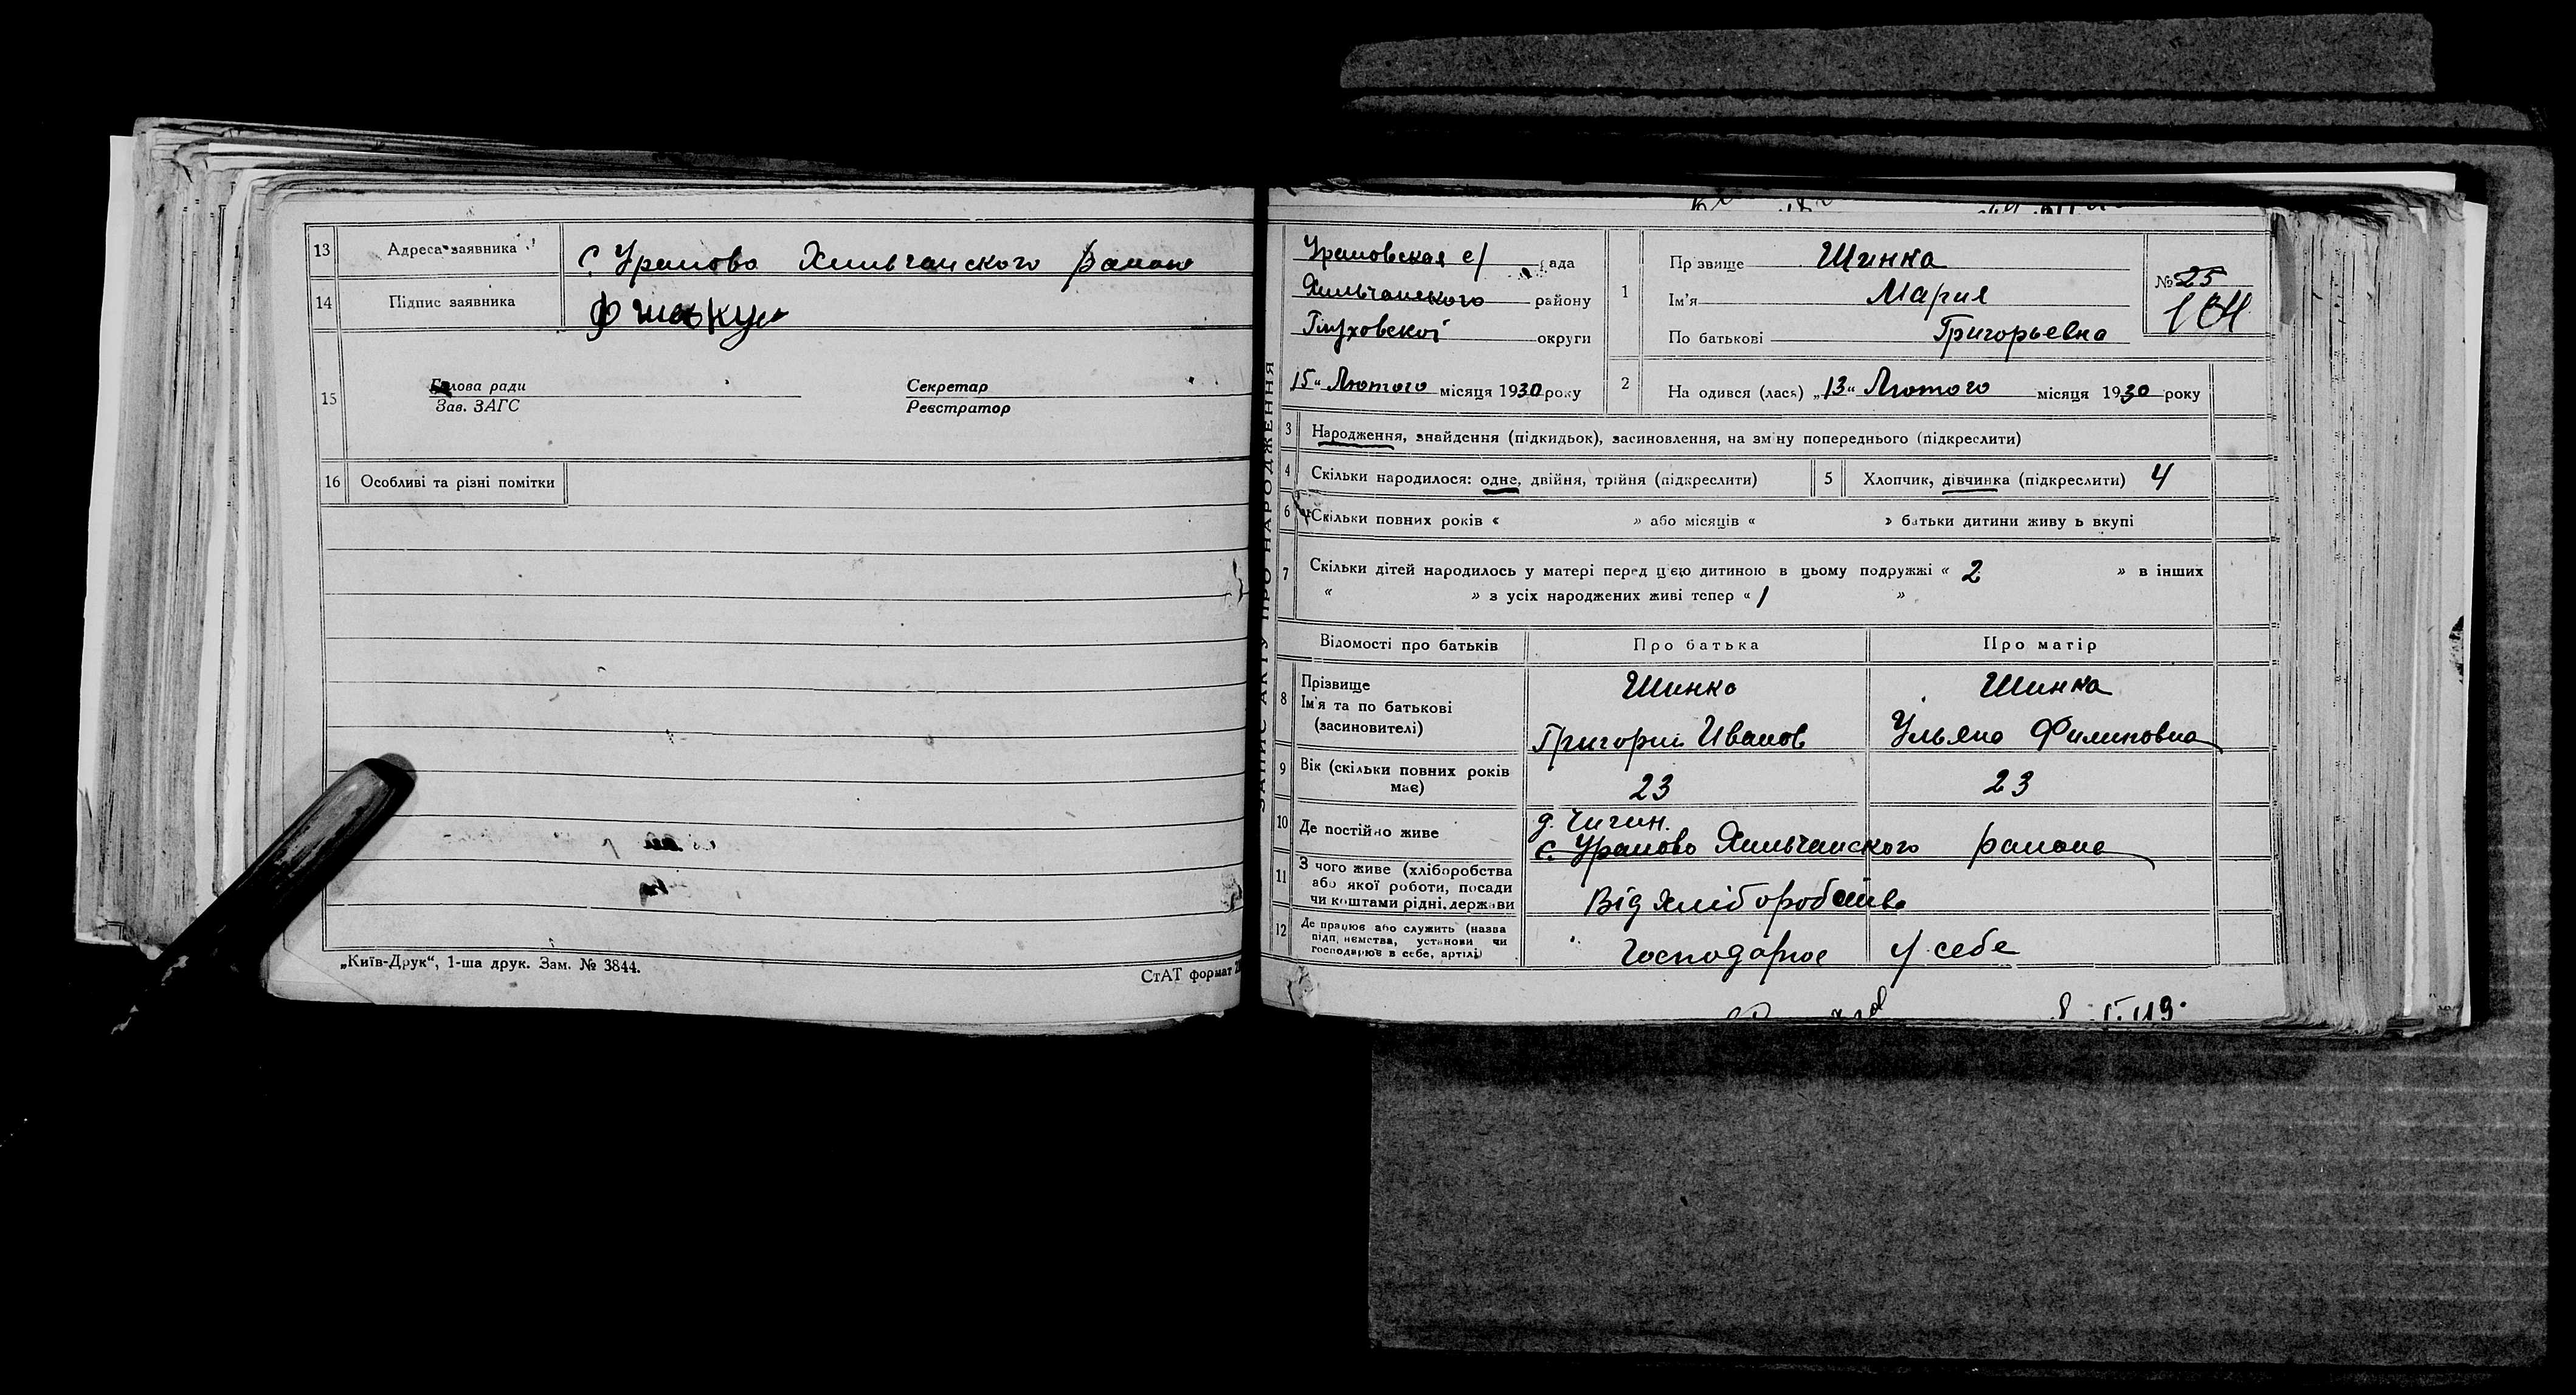 13 Адреса заявника с. Уралово Хильчанского района
14 Підпис заявника
15 Голова ради Секретар
Зав. ЗАГС Реєстратор
16 Особливі та різні помітки
„Київ-Друк“, 1-ша друк. Зам. № 3844.
СтАТ формат
ЗАПИС АКТУ ПРО НАРОДЖЕННЯ
Ураловская с/рада
Хильчанского району
Глуховскої округи
15 „ Лютого місяця 1930 року
1 Прізвище Шинка
Ім'я Мария
По батькові Григорьевна
№ 25
184
2 Народився (лася) „13“ Лютого місяця 1930 року
3 Народження, знайдення (підкидьок), засиновлення, на зміну попереднього (підкреслити)
4 Скільки народилося: одне, двійня, трійня (підкреслити) 5 Хлопчик, дівчинка (підкреслити) 4
6 Скільки повних років « » або місяців « » батьки дитини живуть вкупі
7 Скільки дітей народилось у матері перед цією дитиною в цьому подружжі « 2 » в інших
« » з усіх народжених живі тепер « 1 »
Відомості про батьків Про батька Про матір
8 Прізвище
Ім'я та по батькові
(засиновителі)
Шинко Шинка
Григорий Иванов Ульяна Филиповна
9 Вік (скільки повних років має) 23 23
10 Де постійно живе
с. Уралово Хильчанского района
11 З чого живе (хліборобства
або якої роботи, посади
чи коштами рідні, держави
Від хліборобства
12 Де працює або служить (назва
підприємства, установи чи
господарює в себе, артілі)
Господарює у себе